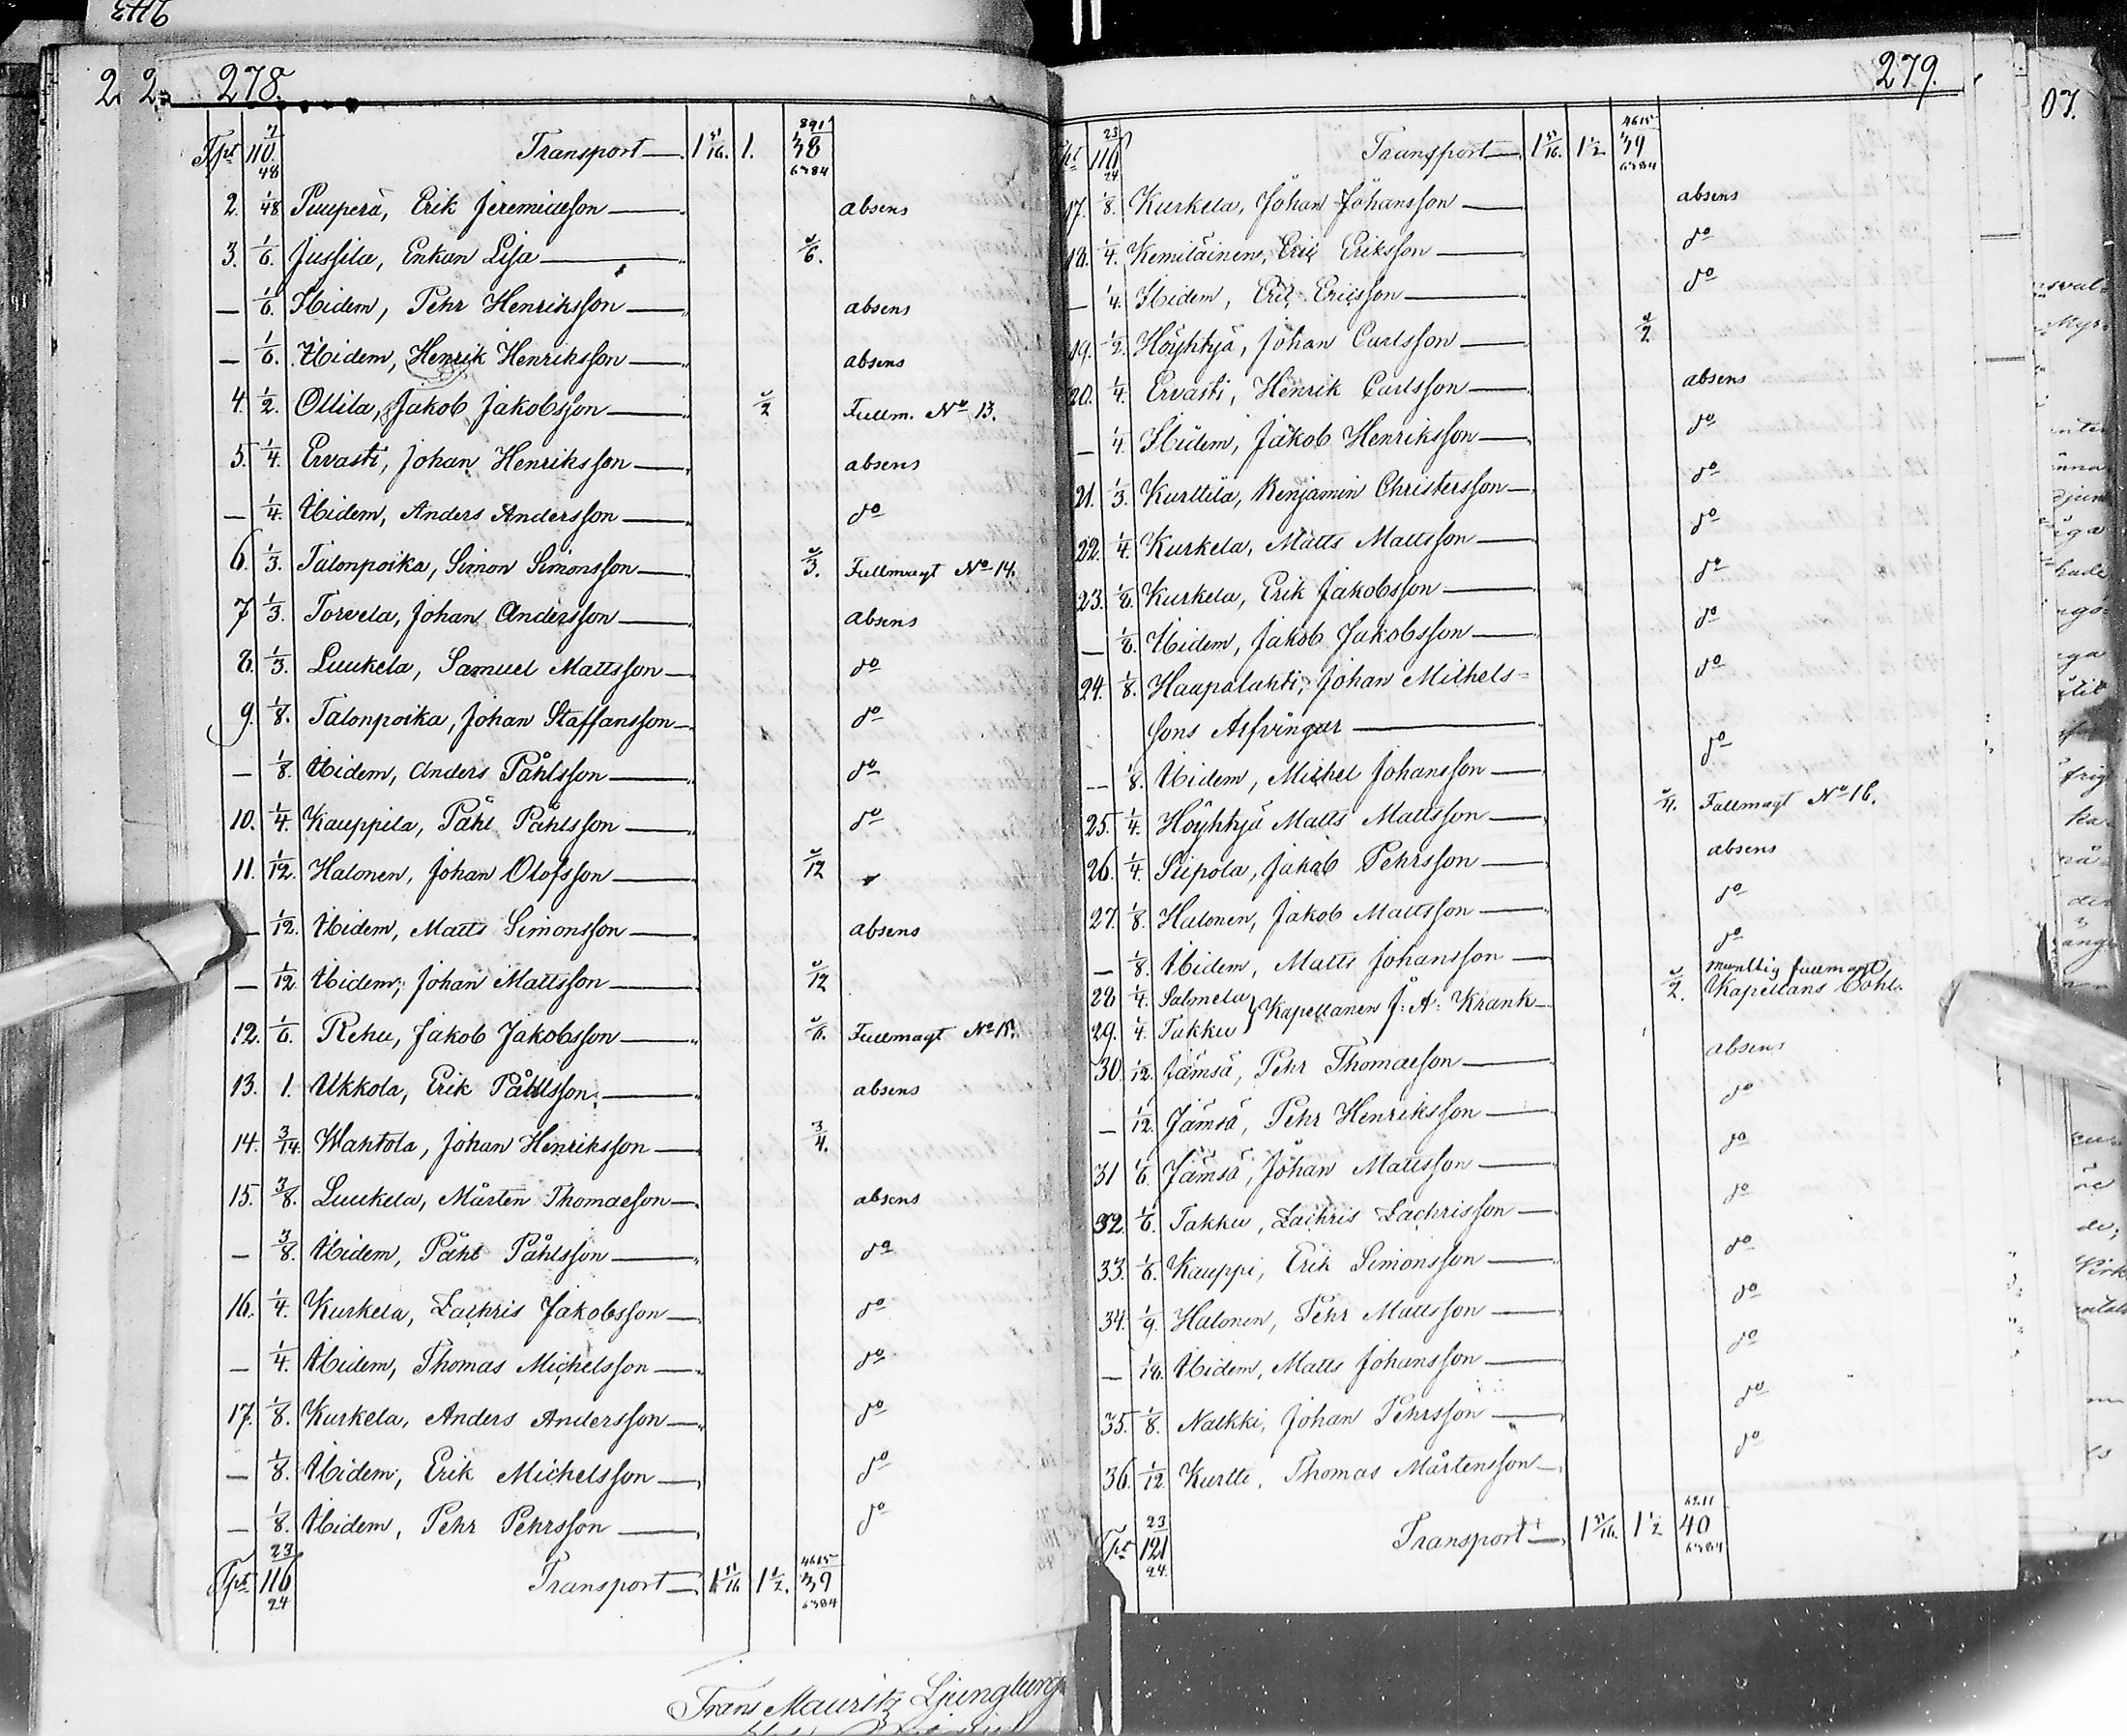 278.
Tpt 110 7/48 Transport 1 5/16. 1. 38 891/6384
2. 1/48 Puuperä, Erik Jeremiaeson absens
3. 1/6. Jussila, Enkan Lisa 1/6.
— 1/6. Ibidem, Pehr Henriksson absens
— 1/6. Ibidem, Henrik Henriksson absens
4. 1/2. Ollila, Jakob Jakobsson 1/2 Fullm. No 13.
5. 1/4. Ervasti, Johan Henriksson absens
— 1/4. Ibidem, Anders Andersson do
6. 1/3. Talonpoika, Simon Simonsson 1/3. Fullmagt No 14.
7 1/3. Torvela, Johan Andersson absens
8. 1/3. Luukela, Samuel Mattsson do
9. 1/8. Talonpoika, Johan Staffansson do
— 1/8. Ibidem, Anders Påhlsson do
10. 1/4. Kauppila, Påhl Påhlsson do
11. 1/12. Halonen, Johan Olofsson 1/12
— 1/12. Ibidem, Matts Simonsson absens
— 1/12 Ibidem, Johan Mattsson 1/12
12. 1/6. Rehu, Jakob Jakobsson 1/6. Fullmagt No 15.
13. 1. Ukkola, Erik Påhlsson absens
14. 3/14. Wahtola, Johan Henriksson 3/4.
15. 3/8. Luukela, Mårten Thomaeson absens
— 3/8. Ibidem, Påhl Påhlsson do
16. 1/4. Kurkela, Zachris Jakobsson do
— 1/4. Ibidem, Thomas Michelsson do
17. 1/8. Kurkela, Anders Andersson do
— 1/8. Ibidem, Erik Michelsson do
— 1/8. Ibidem, Pehr Pehrsson do
Tpt 116 23/24 Transport 1 5/16 1 1/2. 39 4615/6384
Frans Mauritz Ljungberg
279.
116 23/24 Transport 1 5/16. 1 1/2 39 4615/6384
17. 1/8. Kurkela, Johan Johansson absens
18. 1/4. Kemiläinen, Eric Eriksson do
— 1/4. Ibidem, Eric Ericsson do
19. 1/2. Höyhtyä, Johan Carlsson 1/2
20. 1/4. Ervasti, Henrik Carlsson absens
— 1/4. Ibidem, Jakob Henriksson do
21. 1/3. Kurttila, Benjamin Christersson do
22. 1/4. Kurkela, Matts Mattsson do
23. 1/6. Kurkela, Erik Jakobsson do
— 1/6. Ibidem, Jakob Jakobsson do
24. 1/8. Haapalahti, Johan Mikhels= do
sons Arfvingar
— 1/8. Ibidem, Michel Johansson do
25. 1/4. Höyhtyä Matts Mattsson 1/4. Fullmagt No 16.
26. 1/4. Siipola, Jakob Pehrsson absens
27. 1/8. Halonen, Jakob Mattsson do
— 1/8. Ibidem, Matts Johansson do
28 1/4. Salmela } Kapellanen J. A. Krank 1/2. muntlig fullmagt
29. 1/4. Takku Kapellans Bohl.
30. 1/12. Jämsä, Pehr Thomaeson absens
— 1/12. Jämsä, Pehr Henriksson do
31 1/6. Jämsä, Johan Mattsson do
32. 1/6. Takku, Zachris Zachrisson do
33. 1/6. Kauppi, Erik Simonsson do
34. 1/9. Halonen, Pehr Mattsson do
— 1/18. Ibidem, Matts Johansson do
35. 1/8. Nalkki, Johan Pehrsson do
36. 1/12. Kurtti, Thomas Mårtensson do
Tpt 121 23/24. Transport 1 5/16. 1 1/2 40 6211/6384
07.